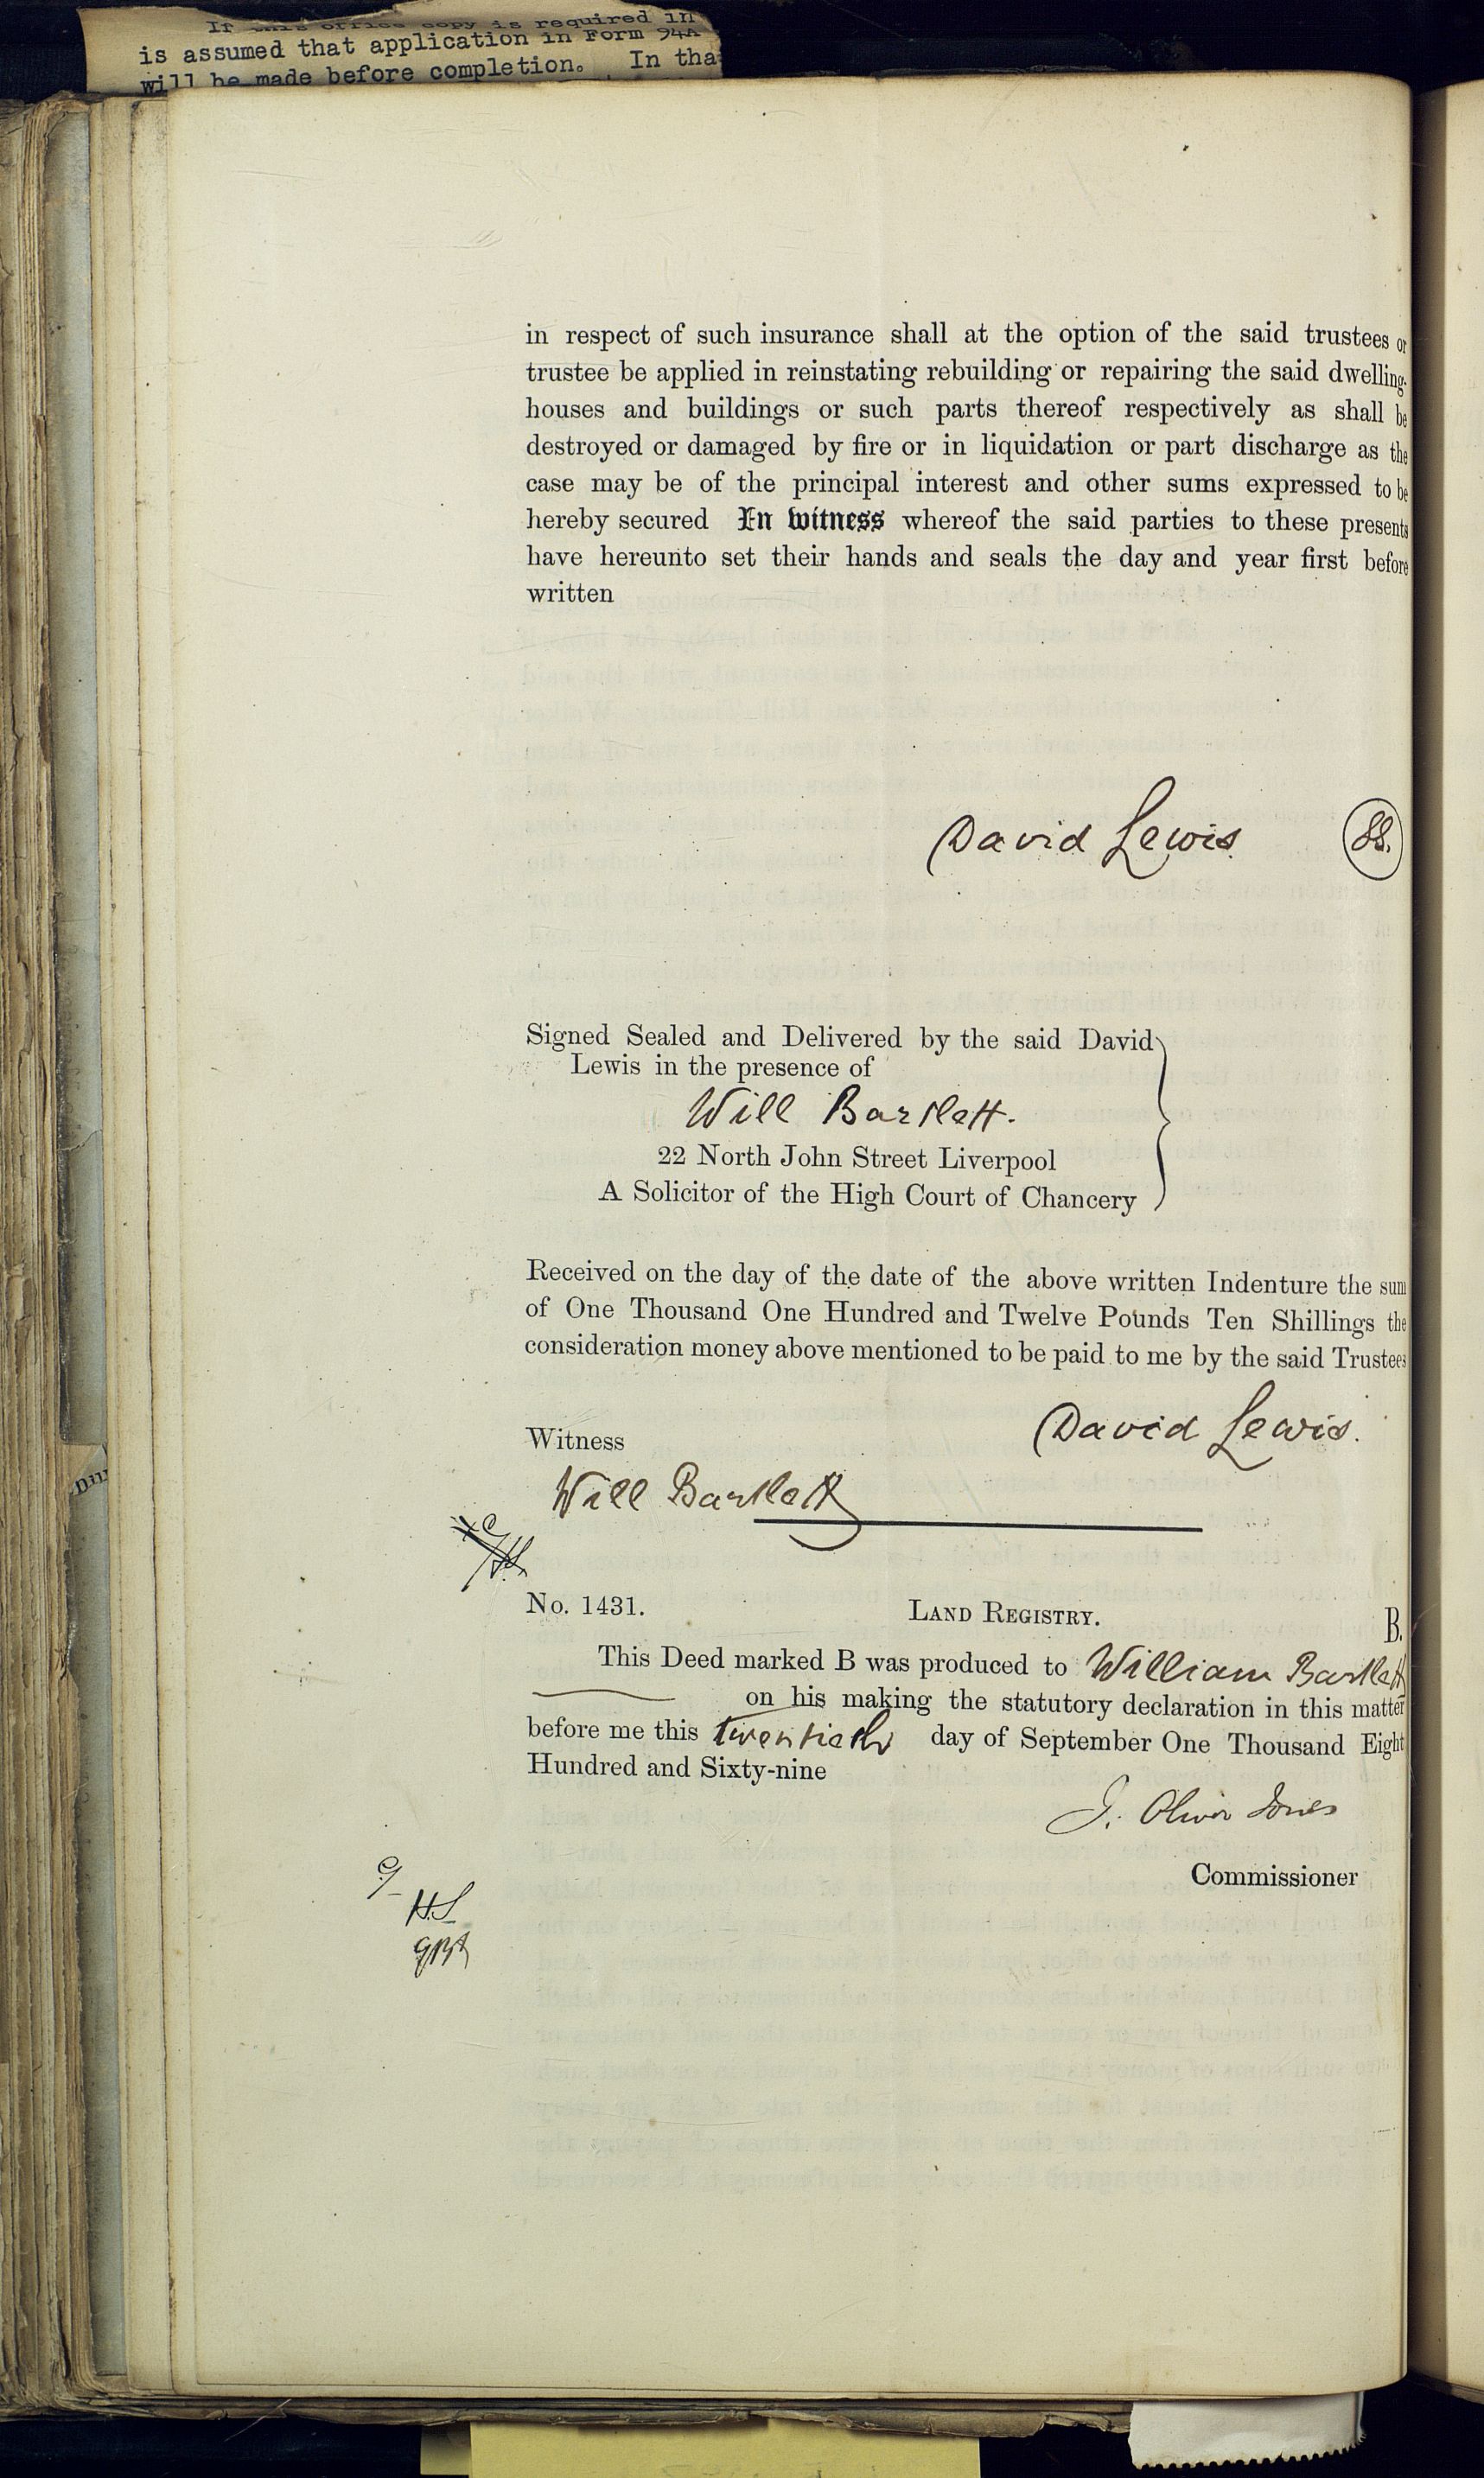 If this office copy is required in
is assumed that application in Form 94A
will be made before completion. In tha
in respect of such insurance shall at the option of the said trustees or
trustee be applied in reinstating rebuilding or repairing the said dwelling-
houses and buildings or such parts thereof respectively as shall be
destroyed or damaged by fire or in liquidation or part discharge as the
case may be of the principal interest and other sums expressed to be
hereby secured In witness whereof the said parties to these presents
have hereunto set their hands and seals the day and year first before
written
David Lewis
Signed Sealed and Delivered by the said David
Lewis in the presence of
Will Bartlett.
22 North John Street Liverpool
A Solicitor of the High Court of Chancery
Received on the day of the date of the above written Indenture the sum
of One Thousand One Hundred and Twelve Pounds Ten Shillings the
consideration money above mentioned to be paid to me by the said Trustees
David Lewis.
Witness
Will Bartlett
No. 1431. LAND REGISTRY. B.
This Deed marked B was produced to William Bartlett
on his making the statutory declaration in this matter
before me this twentieth day of September One Thousand Eight
Hundred and Sixty-nine
J. Oliver Jones
Commissioner
H.S